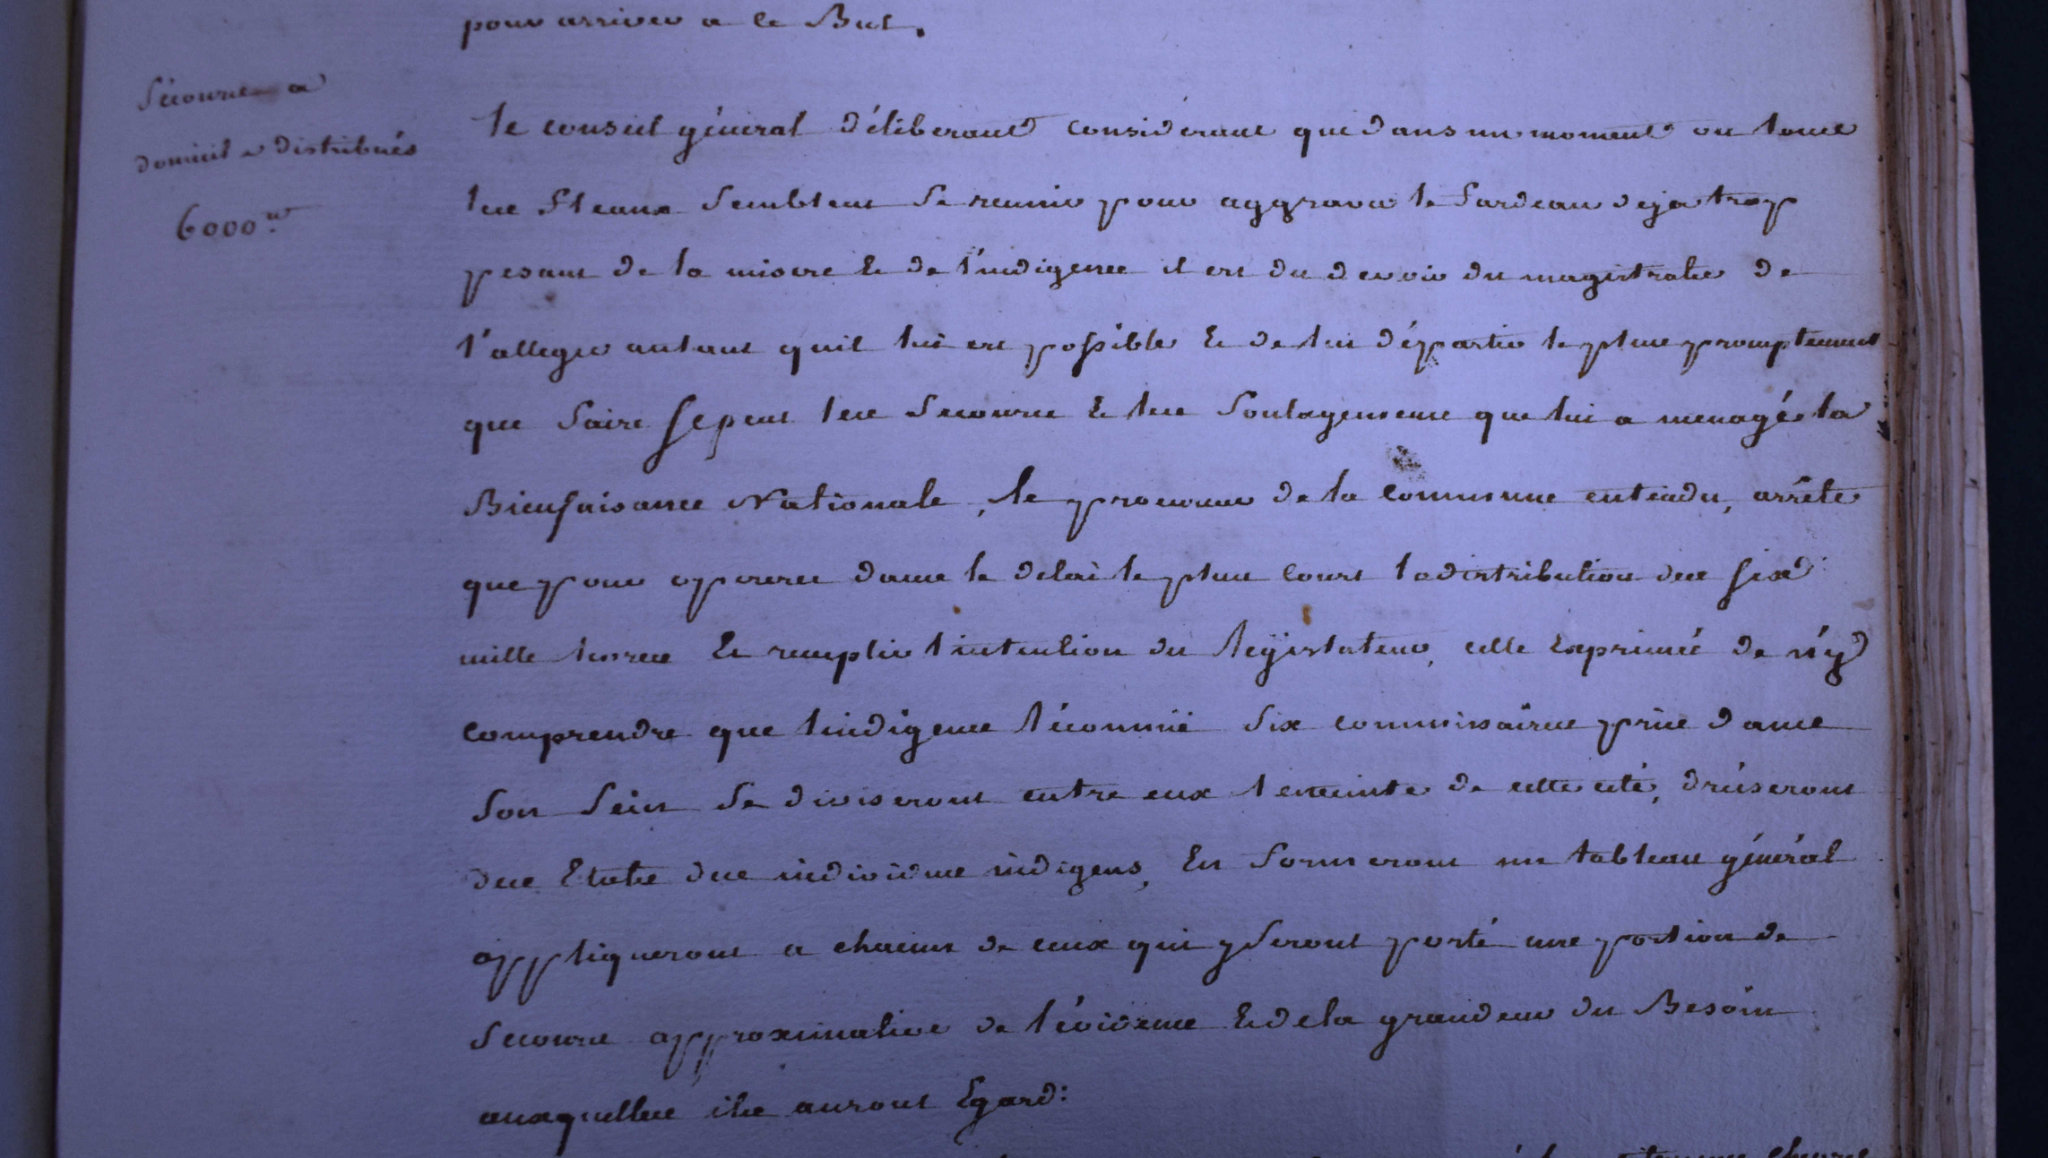 pour arriver a ce But.
Sécours a
domicile distribués
6000.tt
le conseil général déliberant considérant que dans un moment ou tous
les fleaux semblent se reunir pour aggraver le fardeau deja trop
pesant de la misere & de l'indigence il est du devoir du magistrats de
l'alleger autant quil lui est possible & de lui départir le plus promptement
que faire se peut les secours & les soulagemens que lui a menagés la
Bienfaisance Nationale, le procureur de la commune entendu, arrête
que pour operer dans le delai le plus court la distribution des six
mille livres & remplir l'intention du legislateur, celle exprimée de n'y
comprendre que l'indigence réconnüe six commissaires pris dans
son sein se diviseront entre eux l'enceinte de cette cité, dréseront
des Etats des individus indigens, En formeront un tableau général
appliqueront a chacun de ceux qui y seront porté une portion de
secours approximative de l'évidence & de la grandeur du Besoin
auxquelles ils auront Egard: